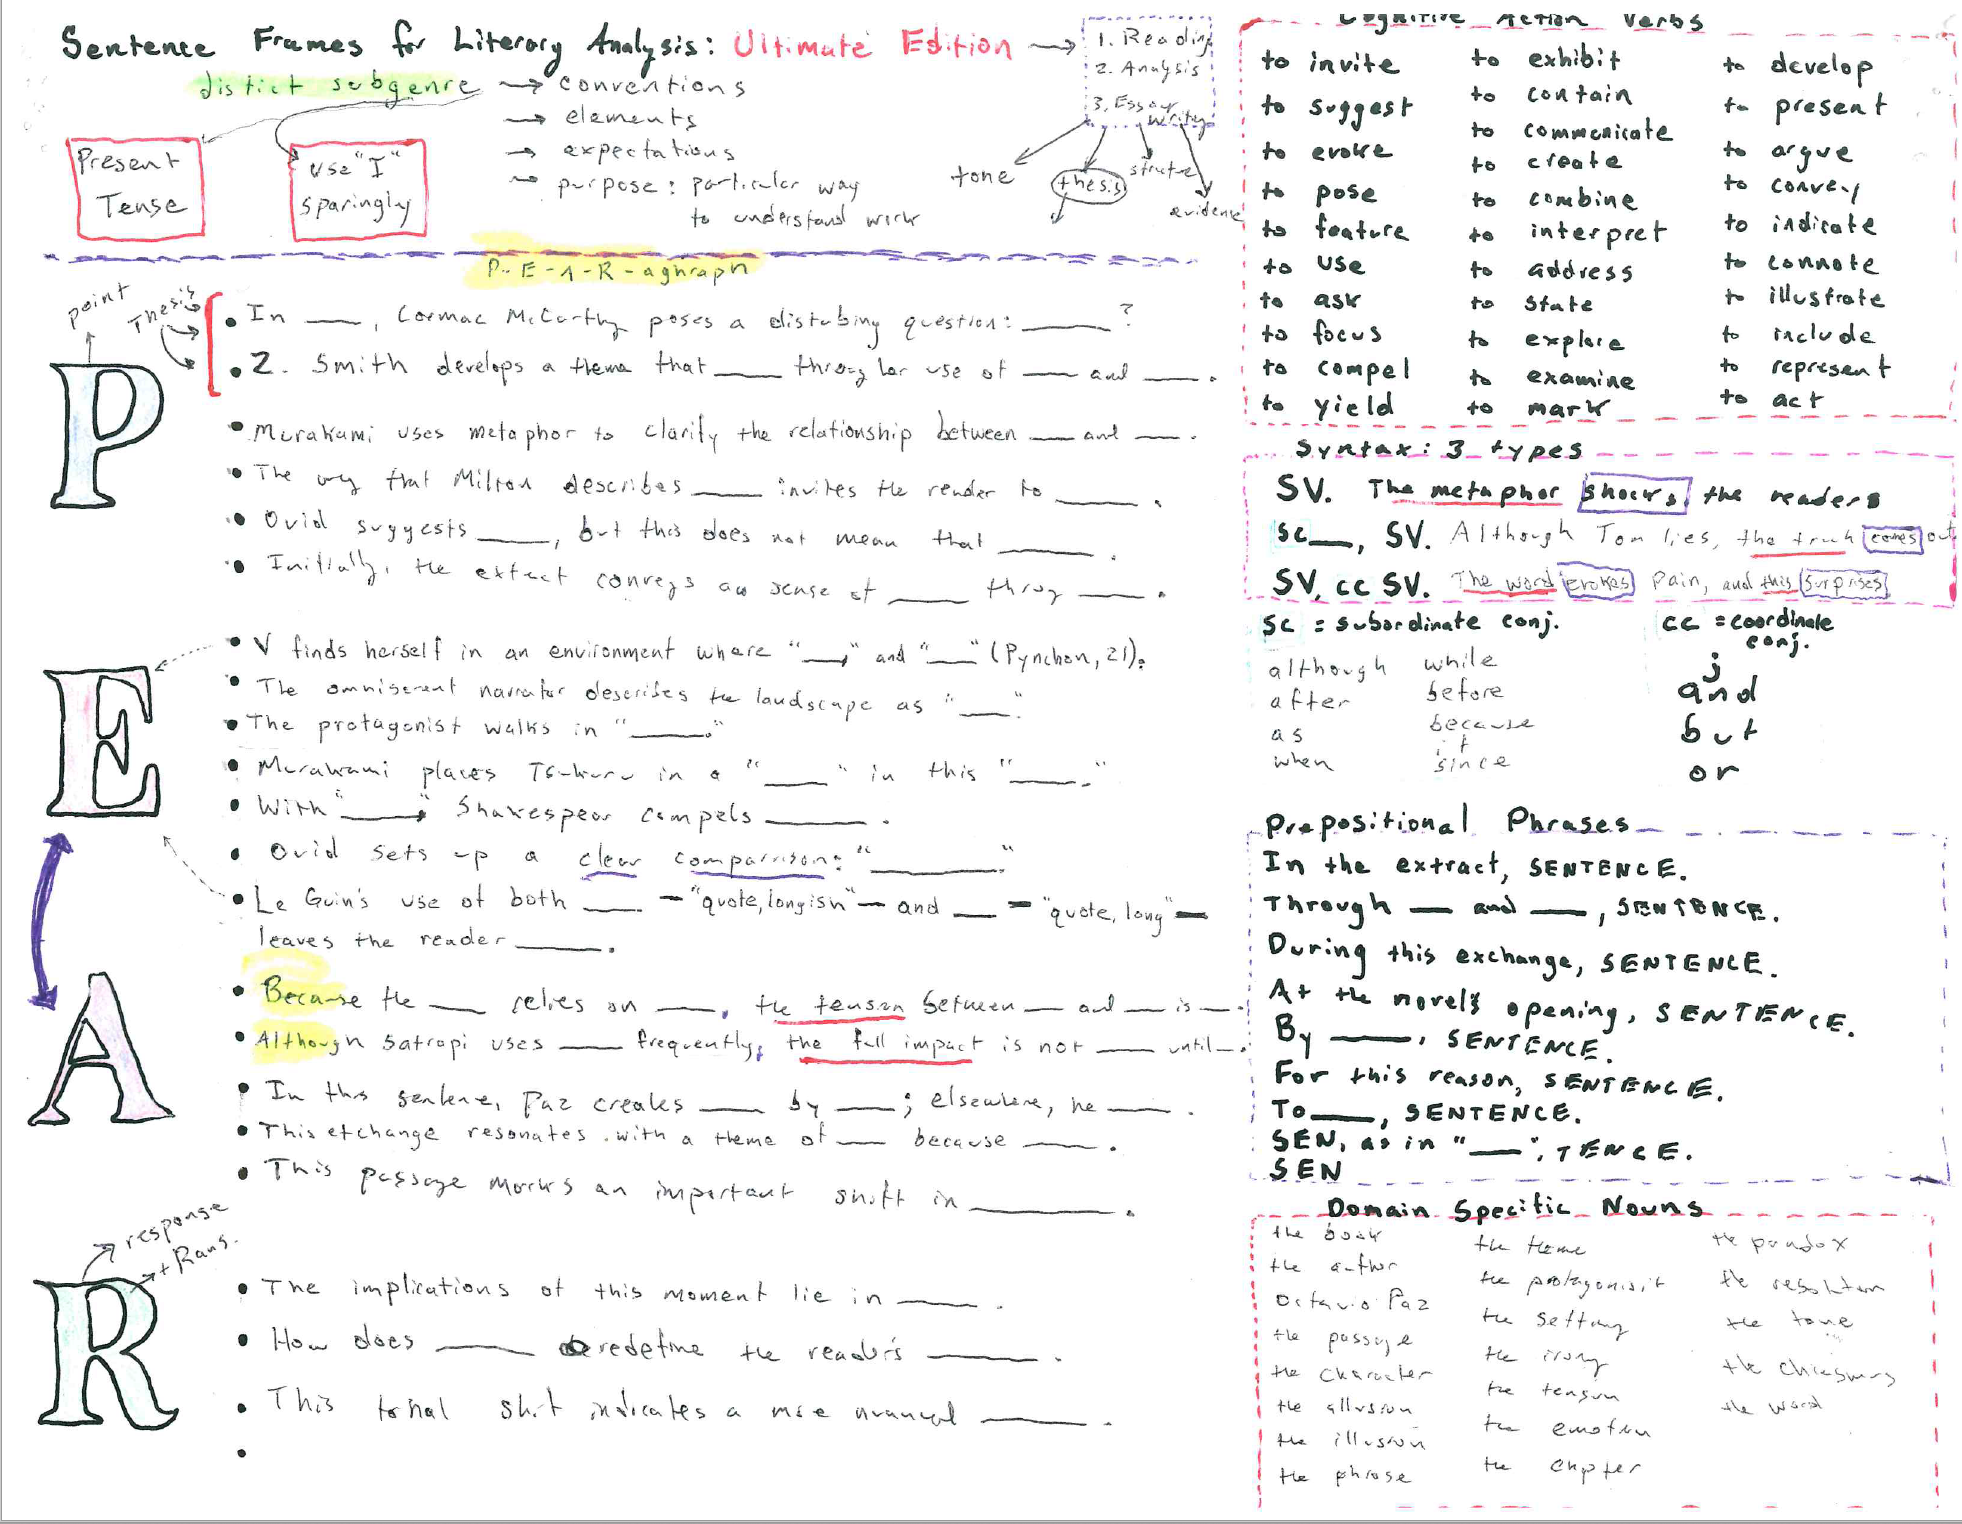 Sentence Frames for Literary Analysis: Ultimate Edition
1. Reading
2. Analysis
3. Essay
writing
tone
thesis
structure
evidence
distict subgenre
conventions
elements
expectations
purpose: particular way
to understand work
Present
Tense
Use "I"
Sparingly
P-E-A-R-aghraph
point
Thesis
P
• In ___, Cormac McCarthy poses a distubing question: ___?
• Z. Smith develops a theme that ___ through her use of ___ and ___.
• Murakami uses metaphor to clarify the relationship between ___ and ___.
• The way that Milton describes ___ invites the reader to ___.
• Ovid suggests ___, but this does not mean that ___.
• Initially, the extract conveys a sense of ___ through ___.
E
• V finds herself in an environment where "___," and "___" (Pynchon, 21).
• The omniscient narrator describes the landscape as "___".
• The protagonist walks in "___."
• Murakami places Tsukuru in a "___" in this "___."
• With "___," Shakespear compels ___.
• Ovid sets up a clear comparrison: "___"
• Le Guin's use of both ___ — "quote, longish" — and ___ — "quote, long" —
leaves the reader ___.
A
• Because the ___ relies on ___, the tension between ___ and ___ is ___.
• Although Satrapi uses ___ frequently, the full impact is not ___ until ___.
• In this sentence, Paz creates ___ by ___; elsewhere, he ___.
• This exchange resonates with a theme of ___ because ___.
• This passage marks an important shift in ___.
response
+ Rans.
R
• The implications of this moment lie in ___.
• How does ___ redefine the reader's ___.
• This tonal shift indicates a more nuanced ___.
•
Cognitive Action Verbs
to invite
to suggest
to evoke
to pose
to feature
to use
to ask
to focus
to compel
to yield
to exhibit
to contain
to communicate
to create
to combine
to interpret
to address
to state
to explore
to examine
to mark
to develop
to present
to argue
to convey
to indicate
to connote
to illustrate
to include
to represent
to act
Syntax: 3 types
SV. The metaphor shocks the readers
SC___, SV. Although Tom lies, the truth comes out
SV, CC SV. The word evokes pain, and this surprises
SC = subordinate conj.
although
after
as
when
while
before
because
if
since
CC = coordinate
conj.
;
and
but
or
Prepositional Phrases
In the extract, SENTENCE.
Through ___ and ___, SENTENCE.
During this exchange, SENTENCE.
At the novel's opening, SENTENCE.
By ___, SENTENCE.
For this reason, SENTENCE.
To ___, SENTENCE.
SEN, as in "___", TENCE.
SEN
Domain Specific Nouns
the book
the author
Octavio Paz
the passage
the character
the allusion
the illusion
the phrase
the theme
the protagonisit
the setting
the irony
the tension
the emotion
the chpter
the paradox
the resolution
the tone
the chiasmus
the word